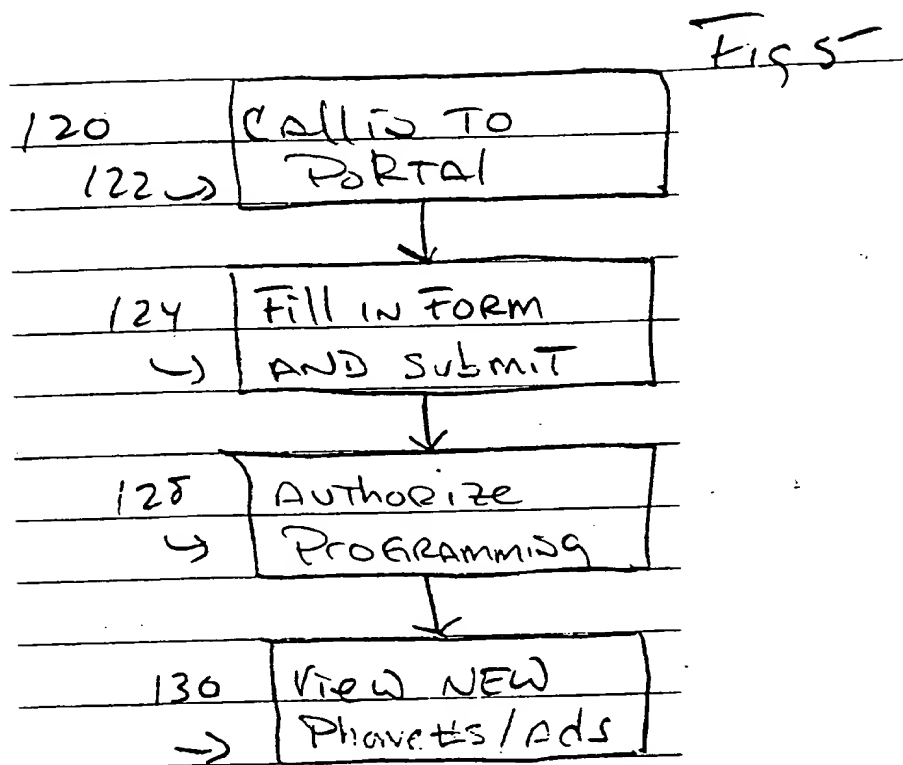 Fig 5
120 Call in To
122 Portal
124 Fill in Form
and submit
Authorize
Programming
130 View New
Phone #s / Ads